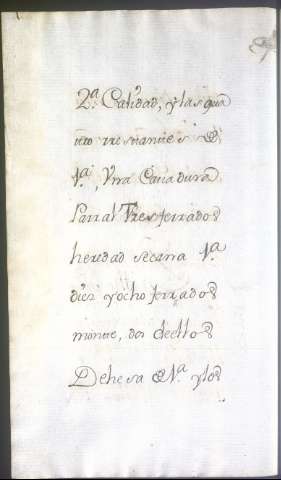 2ª Calidad, y las qua
tro restantes de
1ª, Una Cauadura
Parral Tres ferrados
heredad secana 1ª
diez y ocho ferrados
monte, dos de ellos
Dehesa de 1ª y los